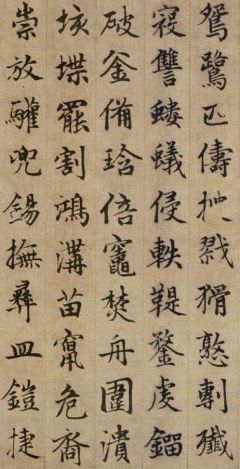 鴛鷺匹儔抛戮猾憝剸殲
寇讐螻蟻侵軼鞮鍪虔鎦
破釜備琀倍竈焚舟圍潰
垓堞罷割鴻溝苗竄危裔
崇放驩兜錫撫彝皿鎧捷